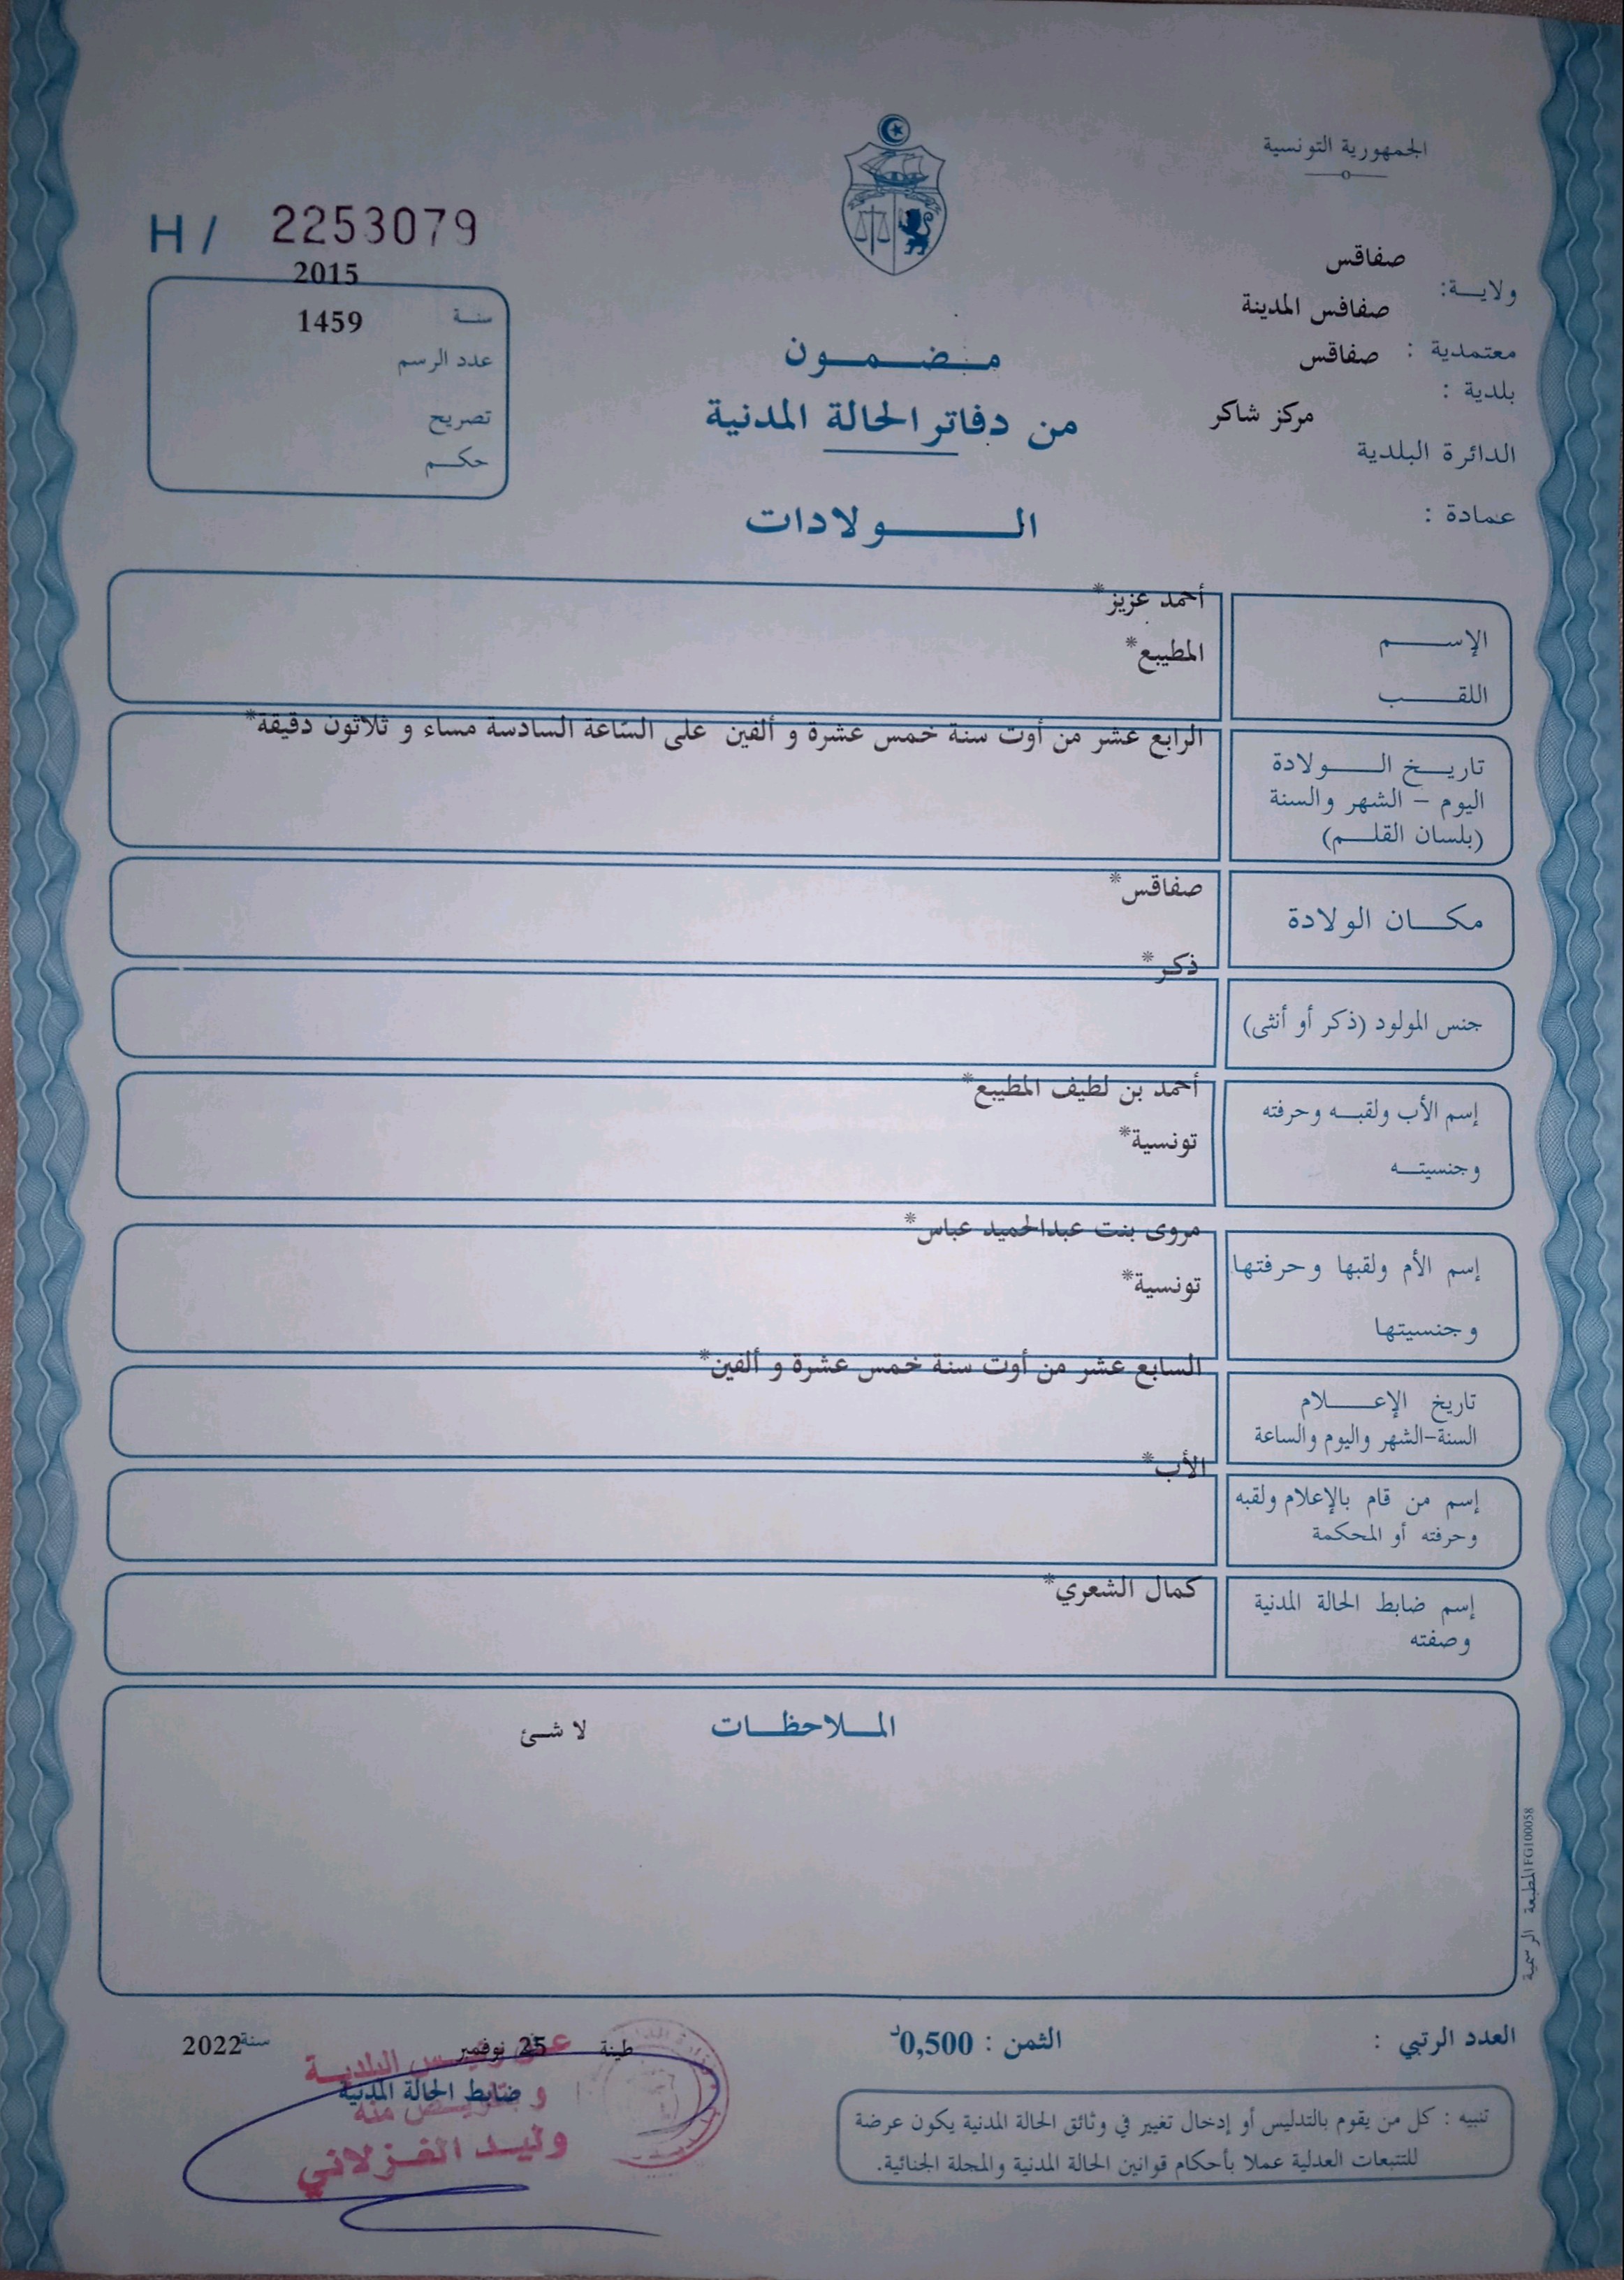 الجمهورية التونسية
H / 2253079
ولاية: صفاقس
معتمدية : صفاقس المدينة
بلدية : صفاقس
الدائرة البلدية مركز شاكر
عمادة :
2015
سنة
1459
عدد الرسم
تصريح
حكم
مضمون
من دفاتر الحالة المدنية
الولادات
الإسم
أحمد عزيز*
اللقب
المطيبع*
تاريخ الولادة
اليوم - الشهر والسنة
(بلسان القلم)
الرابع عشر من أوت سنة خمس عشرة و ألفين على الساعة السادسة مساء و ثلاثون دقيقة*
مكان الولادة
صفاقس*
جنس المولود (ذكر أو أنثى)
ذكر*
إسم الأب ولقبه وحرفته
أحمد بن لطيف المطيبع*
وجنسيته
تونسية*
إسم الأم ولقبها وحرفتها
مروى بنت عبدالحميد عباس*
وجنسيتها
تونسية*
تاريخ الإعلام
السنة-الشهر واليوم والساعة
السابع عشر من أوت سنة خمس عشرة و ألفين*
إسم من قام بالإعلام ولقبه
وحرفته أو المحكمة
الأب*
إسم ضابط الحالة المدنية
وصفته
كمال الشعري*
الملاحظات
لا شئ
المطبعة الرسمية FG100058
العدد الرتبي :
الثمن : 0,500د
طينة 25 نوفمبر سنة 2022
ضابط الحالة المدنية
عن رئيس البلدية
و بتفويض منه
وليد الغزلاني
تنبيه : كل من يقوم بالتدليس أو إدخال تغيير في وثائق الحالة المدنية يكون عرضة
للتتبعات العدلية عملا بأحكام قوانين الحالة المدنية والمجلة الجنائية.